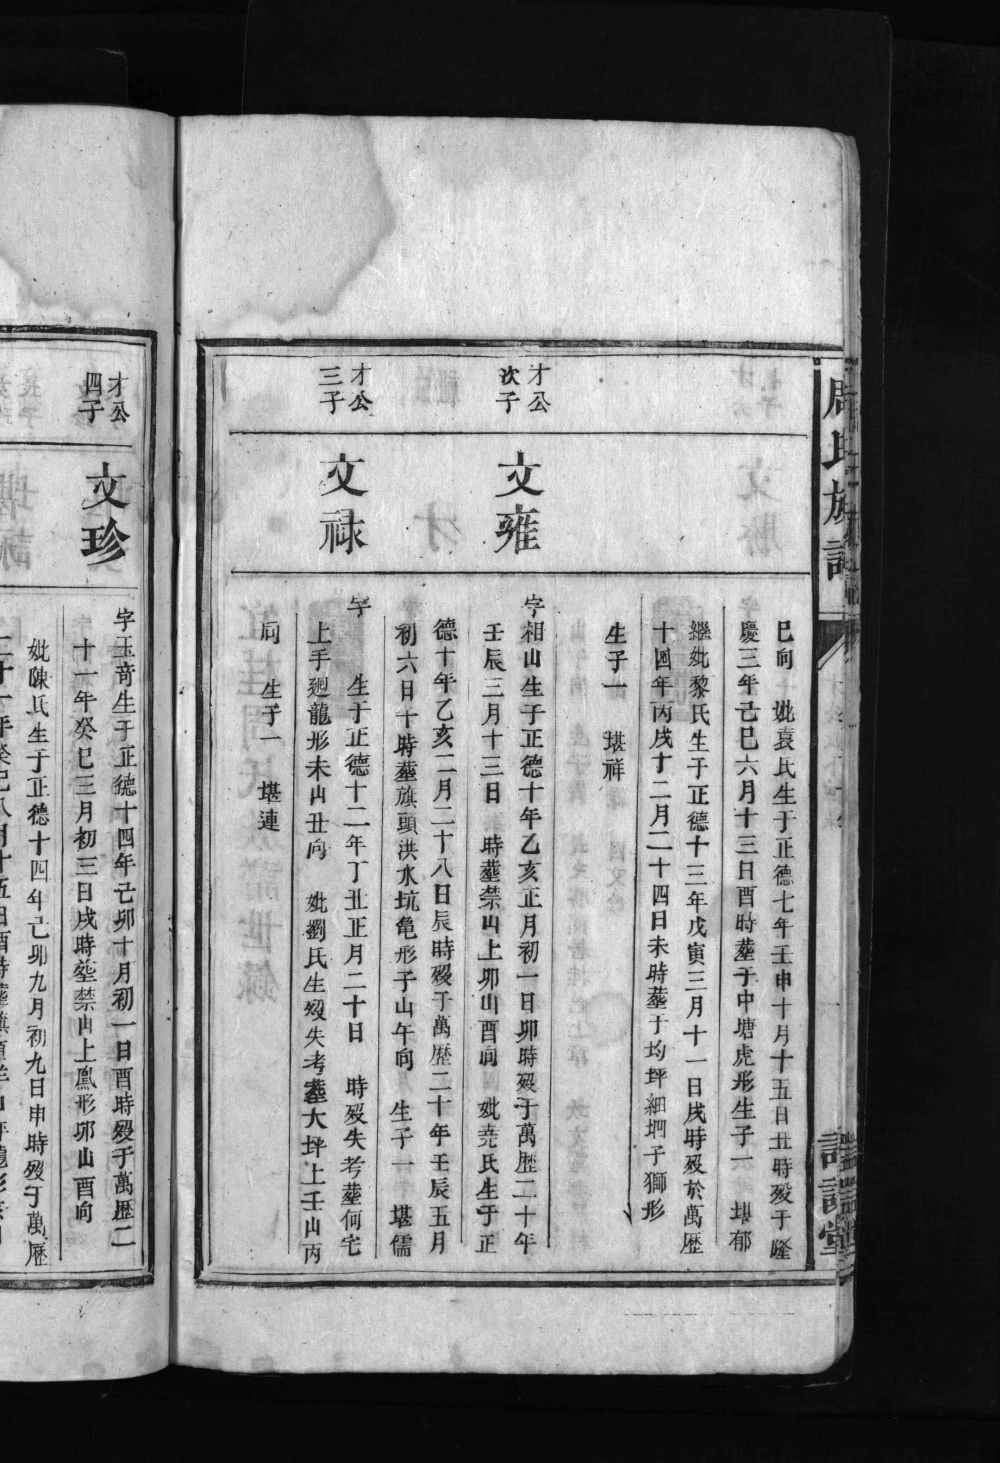 周氏族譜
巳向 妣袁氏生于正德七年壬申十月十五日丑時殁于隆
慶三年己巳六月十三日酉時塟于中塘虎形生子一 堪郁
繼妣黎氏生于正德十三年戊寅三月十一日戌時殁於萬歴
十四年丙戌十二月二十四日未時塟于均坪細坰子獅形
生子一 堪祥
才公
次子
文雍
字相山生于正德十年乙亥正月初一日卯時殁于萬歴二十年
壬辰三月十三日 時塟禁山上卯山酉向 妣堯氏生于正
德十年乙亥二月二十八日辰時殁于萬歴二十年壬辰五月
初六日十時塟旗頭洪水坑亀形子山午向 生子一 堪儒
才公
三子
文禄
字 生于正德十二年丁丑正月二十日 時殁失考塟何宅
上手廻龍形未山丑向 妣劉氏生殁失考塟大坪上壬山丙
向 生子一 堪連
才公
四子
文珍
字玉奇生于正德十四年己卯十月初一日酉時殁于萬歴二
十一年癸巳三月初三日戌時塟禁山上鳳形卯山酉向
妣陳氏生于正德十四年己卯九月初九日申時殁于萬歴
二十一年癸巳八月十五日酉時塟旗頭